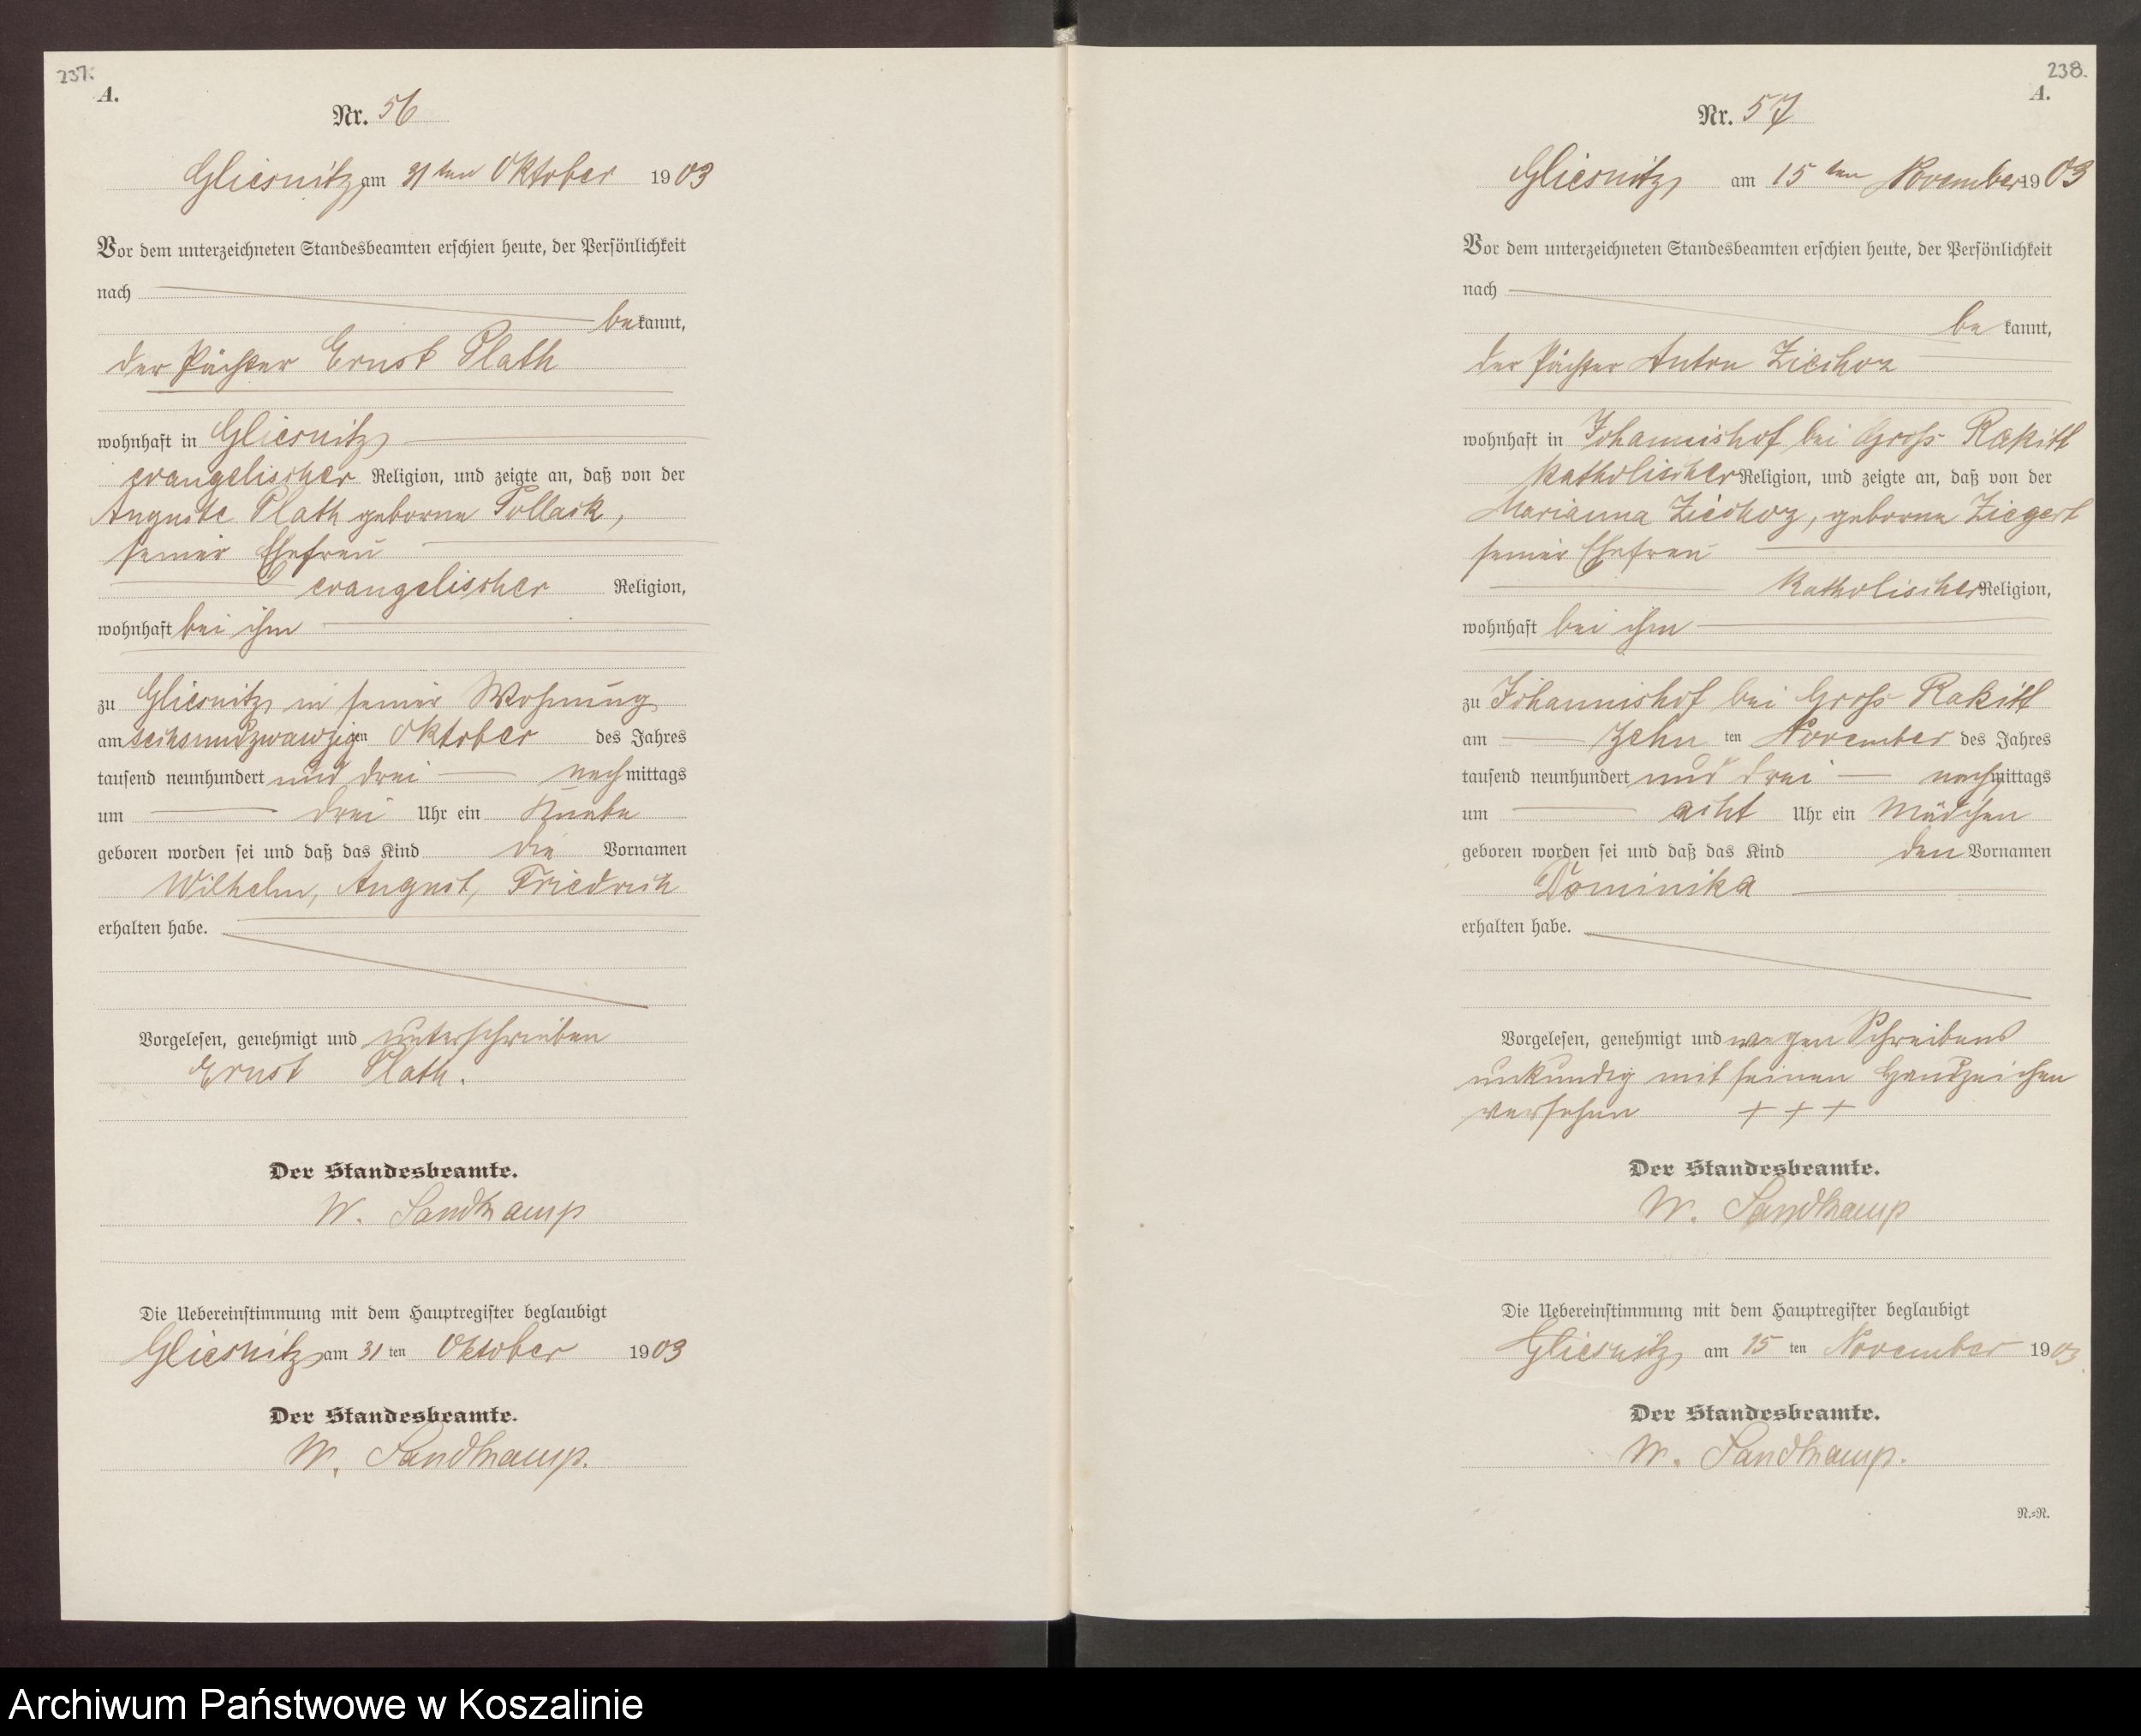 237.
A.
Nr. 56
Gliesnitz am 31ten Oktober 1903
Vor dem unterzeichneten Standesbeamten erschien heute, der Persönlichkeit
nach
bekannt,
der Pächter Ernst Plath
wohnhaft in Gliesnitz
evangelischer Religion, und zeigte an, daß von der
Auguste Plath geborne Pollack,
seiner Ehefrau
evangelischer Religion,
wohnhaft bei ihm
zu Gliesnitz in seiner Wohnung
am sechsundzwanzigen Oktober des Jahres
tausend neunhundert und drei nachmittags
um drei Uhr ein Knabe
geboren worden sei und daß das Kind die Vornamen
Wilhelm, August, Friedrich
erhalten habe.
Vorgelesen, genehmigt und unterschrieben
Ernst Plath.
Der Standesbeamte.
W. Sandkamp
Die Uebereinstimmung mit dem Hauptregister beglaubigt
Gliesnitz am 31 ten Oktober 1903
Der Standesbeamte.
W. Sandkamp.
238.
A.
Nr. 57
Gliesnitz am 15ten November 1903
Vor dem unterzeichneten Standesbeamten erschien heute, der Persönlichkeit
nach
bekannt,
der Pächter Anton
wohnhaft in Johannishof bei Groß Rakitt
katholischer Religion, und zeigte an, daß von der
Marianna geborne Ziegert
seiner Ehefrau
katholischer Religion,
wohnhaft bei ihm
zu Johannishof bei Groß Rakitt
am zehn ten November des Jahres
tausend neunhundert und drei nachmittags
um acht Uhr ein Mädchen
geboren worden sei und daß das Kind den Vornamen
Dominika
erhalten habe.
Vorgelesen, genehmigt und wegen Schreibens
unkundig mit seinen Handzeichen
versehen + + +
Der Standesbeamte.
W. Sandkamp
Die Uebereinstimmung mit dem Hauptregister beglaubigt
Gliesnitz am 15 ten November 1903
Der Standesbeamte.
W. Sandkamp.
N.=N.
Archiwum Państwowe w Koszalinie